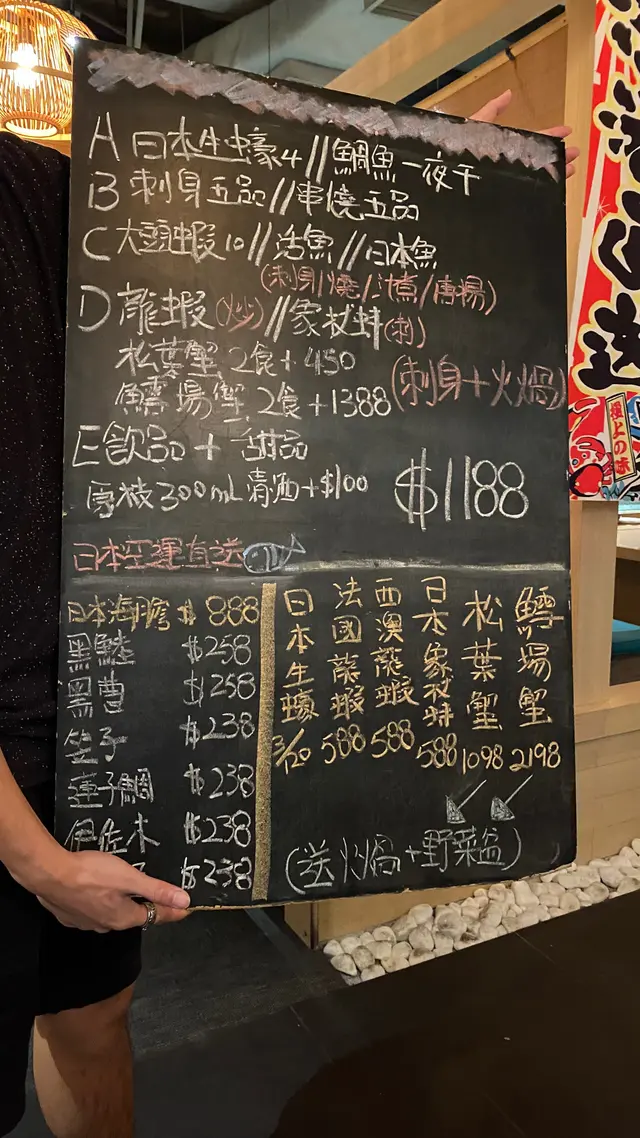 A 日本生蠔4//鯛魚一夜干
B 刺身五品//串燒五品
C 大頭蝦10//活魚//日本魚
(刺身/燒/汁煮/唐揚)
D 龍蝦(炒)//象拔蚌(刺)
松葉蟹 2食+450
鱈場蟹 2食+1388(刺身+火鍋)
E 飲品+甜品
每枝300mL清酒+$100
$1188
日本空運直送
日本海膽 $888
黑鱸 $258
黑曹 $258
$238
蓮子鯛 $238
伊佐木 $238
$238
日本生蠔 3/20
法國龍蝦 588
西澳龍蝦 588
日本象拔蚌 588
松葉蟹 1098
鱈場蟹 2198
(送火鍋+野菜盆)
極上の味